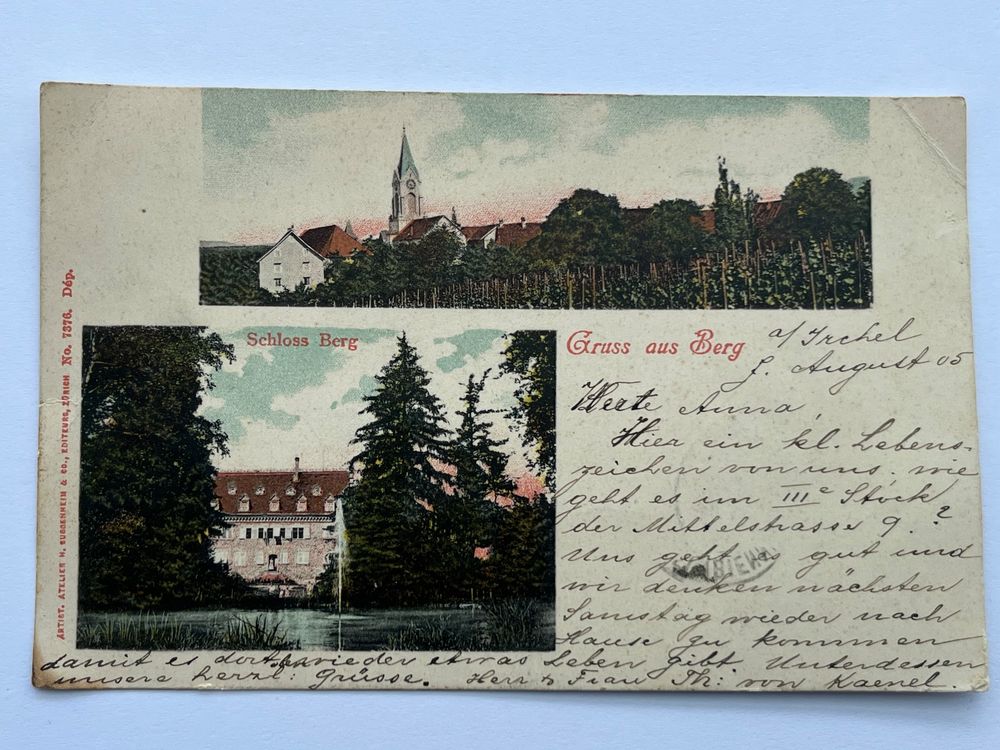 Schloss Berg
Gruss aus Berg
a/ Irchel
7. August 05
Werte Anna,
Hier ein kl. Lebens-
zeichen von uns. wie
geht es im IIIe Stock
der Mittelstrasse 9?
Uns geht es gut und
wir denken nächsten
Samstag wieder nach
Hause zu kommen
damit es dort wieder etwas Leben gibt. Unterdessen
unsere herzl: Grüsse. Herr & Frau Th: von Kaenel.
ARTIST. ATELIER H. GUGGENHEIM & CO., EDITEURS, ZÜRICH No. 7376. Dép.